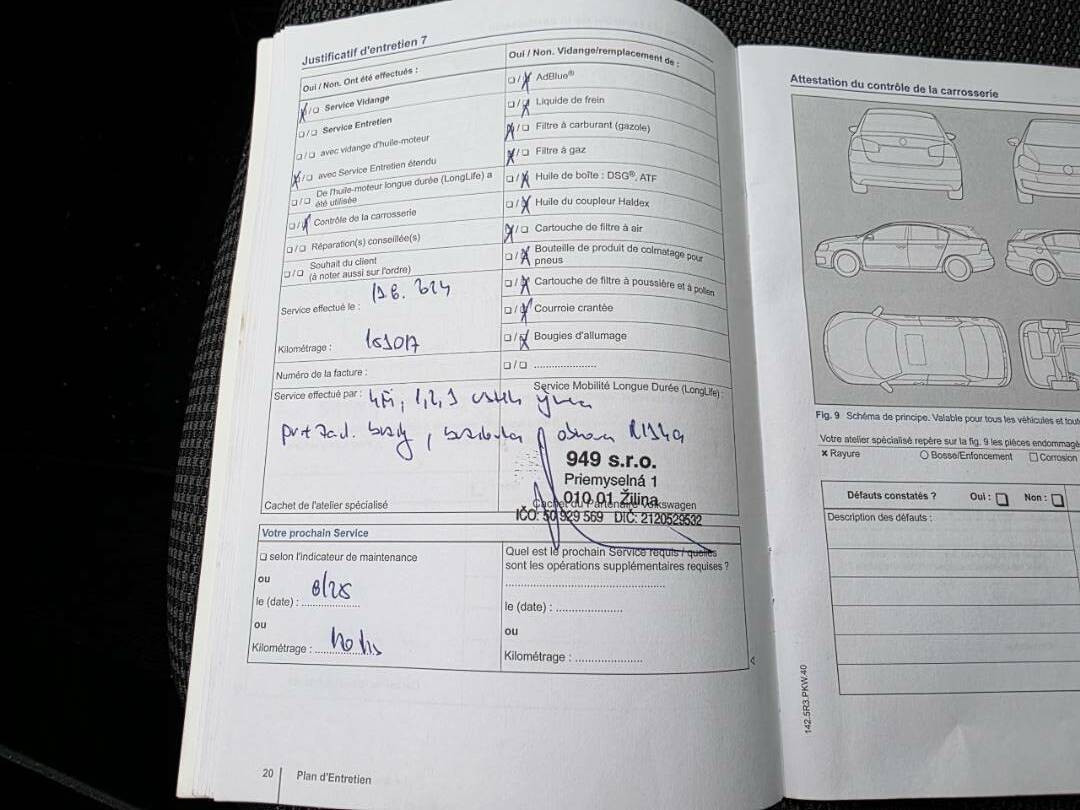 Justificatif d'entretien 7
Oui / Non. Ont été effectués :
☒/☐ Service Vidange
☐/☐ Service Entretien
☐/☐ avec vidange d'huile-moteur
☒/☐ avec Service Entretien étendu
☐/☐ De l'huile-moteur longue durée (LongLife) a
été utilisée
☐/☒ Contrôle de la carrosserie
☐/☐ Réparation(s) conseillée(s)
☐/☐ Souhait du client
(à noter aussi sur l'ordre)
Service effectué le :
Kilométrage :
Numéro de la facture :
Oui / Non. Vidange/remplacement de :
☐/☒ AdBlue®
☐/☒ Liquide de frein
☒/☐ Filtre à carburant (gazole)
☒/☐ Filtre à gaz
☐/☒ Huile de boîte : DSG®, ATF
☐/☒ Huile du coupleur Haldex
☒/☐ Cartouche de filtre à air
☐/☒ Bouteille de produit de colmatage pour
pneus
☐/☒ Cartouche de filtre à poussière et à pollen
☐/☒ Courroie crantée
☐/☒ Bougies d'allumage
☐/☐ .....................
Service effectué par :
Service Mobilité Longue Durée (LongLife) :
949 s.r.o.
Priemyselná 1
010 01 Žilina
IČO: 50 929 569 DIČ: 2120529532
Cachet de l'atelier spécialisé
Cachet du Partenaire Volkswagen
Votre prochain Service
☐ selon l'indicateur de maintenance
ou
8/25
le (date) : ...................
ou
Kilométrage : .....................
Quel est le prochain Service requis / quelles
sont les opérations supplémentaires requises ?
..................................................
le (date) : .....................
ou
Kilométrage : .....................
20 Plan d'Entretien
Attestation du contrôle de la carrosserie
Fig. 9 Schéma de principe. Valable pour tous les véhicules et
Votre atelier spécialisé repère sur la fig. 9 les pièces
x Rayure ○ Bosse/Enfoncement ☐ Corrosion
Défauts constatés ? Oui : ☐ Non : ☐
Description des défauts :
142.5R3.PKW.40